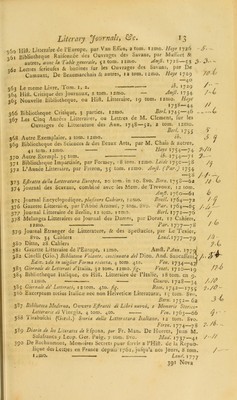 Literary Journals, &c. 13
360 Hist. Litteraire de l'Europe, par Van Effen, 6 tom. 12mo. Haye 1726
361 Bibliotheque Raisonnée des Ouvrages des Savans, par Massuet &
autres, avec la Table generale, 52 tom. 12mo. Amst. 1728—53
362 Lettres serieuses & badines sur les Ouvrages des Savans, par De
Camusat, De Beaumarchais & autres, 12 tom. 12mo. Haye 1729
—40
363 Le meme Livre, Tom. 1, 2. ib. 1729
364 Hist. Critique des Journaux, 2 tom. 12mo. — Amst. 1734
365 Nouvelle Bibliotheque, ou Hist. Litteraire, 19 tom. 12mo. Haye
1738—44
366 Bibliotheque Critique, 3 parties. 12mo. Berl. 1746
367 Les Cinq Années Litteraires, ou Lettres de M. Clement, sur les
Ouvrages de Litterature des Ann. 1748—52, 2 tom. 12mo.
Berl. 1755
368 Autre Exemplaire, 2 tom. 12mo. ib.
369 Bibliotheque des Sciences & des Beaux Arts, par M. Chais & autres,
41 tom. 12mo. — — Haye 1754—75
370 Autre Exempl. 35 tom. ib. 1754—71
371 Bibliotheque Impartiale, par Formey, 18 tom. 12mo. Leide 1750—58
372 L'Année Litteraire, par Freron, 35 tom. 12mo. Amst. (Par.) 1754
373 Efemere della Letteratura Europea, 27 tom. in 20. 8vo. Bern, 1758
374 Journal des Scavans, combiné avec les Mem. de Trevoux, 12 tom.
Amst. 1760—61
375 Journal Encyclopedique, plusieurs Cahiers, 12mo. Bouill. 1763—72
376 Gazette Litteraire, par l'Abbé Arnaud, 7 tom. 8vo. Par. 1764—65
377 Journal Litteraire de Berlin, 12 tom. 12mo. Berl. 1772—76
378 Melanges Litteraires ou Journal des Dames, par Dorat, 13 Cahiers,
12mo. — — Par. 1777—78
379 Journal Etranger de Litterature, & des Spectacles, par Le Texier,
8vo. 34 Cahiers — — Lond. 1777—79
380 Ditto, 28 Cahiers
381 Gazette Litteraire de l'Europe, 12mo. Amst. 1780
382 Cinelli (Gio.) Biblioteca Volante, continuata dal Dion. And. Sancassani,
Ediz. 2da in miglior Forma ridotta, 4 tom 4to. Ven. 1734—47
383 Giornale de Letterati d'Italia, 34 tom. 12mo. fig. Venet. 1710—23
384 Bibliotheque Italique, ou Hist. Litteraire de l'Italie, 18 tom. in 9.
12mo. — — Genev. 1728—34
385 Giornale de' Letterati, 12 tom. 4to. fig. Rom. 1742—53
386 Excerptum totius Italicæ nec non Helveticæ Litteraturæ, 15 tom. 8vo.
Bern. 1758—62
387 Biblioteca Moderna, Ovvero Estratti di Libri nuovi, e Memorie Storico
Letteraria di Venezia, 4 tom. 4to. — Ven. 1763—66
388 Tiraboschi (Girol.) Storia della Letteratura Italiana, 12 tom. 8vo.
Firen. 1774—78
389 Diario de los Literatos de España, por Fr. Man. De Huerta, Juan M.
Salafranca y Leop. Ger. Puig, 7 tom. 8vo. Mad. 1737—42
390 De Bachaumont, Memoires Secrets pour servir à l'Hist. de la Republique
des Lettres en France depuis 1762, jusqu'à nos jours, 6 tom.
12mo. — — Lond. 1777
391 Nova